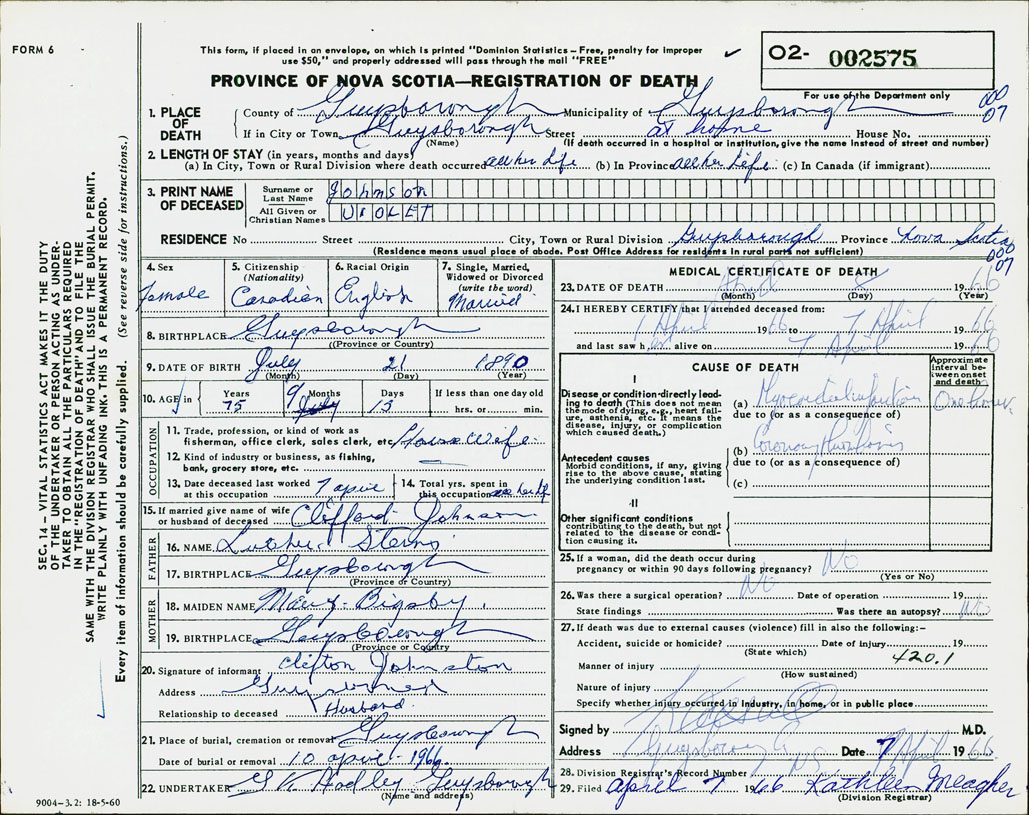 FORM 6
This form, if placed in an envelope, on which is printed "Dominion Statistics – Free, penalty for improper
use $50," and properly addressed will pass through the mail "FREE"
✓
O2- 002575
PROVINCE OF NOVA SCOTIA—REGISTRATION OF DEATH
For use of the Department only
000
07
1. PLACE OF DEATH
County of Guysborough Municipality of Guysborough
If in City or Town Guysborough Street at home House No.
(Name) (If death occurred in a hospital or institution, give the name instead of street and number)
2. LENGTH OF STAY (in years, months and days)
(a) In City, Town or Rural Division where death occurred all her life (b) In Province all her life (c) In Canada (if immigrant)
3. PRINT NAME OF DECEASED
Surname or Last Name Johnson
All Given or Christian Names VIOLET
RESIDENCE No Street City, Town or Rural Division Guysborough Province Nova Scotia
(Residence means usual place of abode. Post Office Address for residents in rural parts not sufficient)
000
07
4. Sex
female
5. Citizenship
(Nationality)
Canadian
6. Racial Origin
English
7. Single, Married, Widowed or Divorced
(write the word)
Married
8. BIRTHPLACE Guysborough
(Province or Country)
9. DATE OF BIRTH July 21 1890
(Month) (Day) (Year)
10. AGE in
Years 75
Months 9
Days 13
If less than one day old
hrs. or min.
OCCUPATION
11. Trade, profession, or kind of work as
fisherman, office clerk, sales clerk, etc. House Wife
12. Kind of industry or business, as fishing,
bank, grocery store, etc.
13. Date deceased last worked
at this occupation 7 april
14. Total yrs. spent in
this occupation all her life
15. If married give name of wife
or husband of deceased Clifford Johnson
FATHER
16. NAME Luther Sterns
17. BIRTHPLACE Guysborough
(Province or Country)
MOTHER
18. MAIDEN NAME Mary Bigsby
19. BIRTHPLACE Guysborough
(Province or Country)
20. Signature of informant Clifton Johnston
Address
Relationship to deceased Husband
21. Place of burial, cremation or removal Guysborough
Date of burial or removal 10 april - 1966
22. UNDERTAKER Hadley Guysborough
(Name and address)
9004-3.2: 18-5-60
MEDICAL CERTIFICATE OF DEATH
23. DATE OF DEATH April 8 1966
(Month) (Day) (Year)
24. I HEREBY CERTIFY that I attended deceased from:
1 April 1966 to 7 April 1966
and last saw her alive on 7 April 1966
CAUSE OF DEATH
Approximate interval between onset and death
I
Disease or condition directly leading to death (This does not mean the mode of dying, e.g., heart failure, asthenia, etc. It means the disease, injury, or complication which caused death.)
(a) Myocardial infarction One hour
due to (or as a consequence of)
Antecedent causes
Morbid conditions, if any, giving rise to the above cause, stating the underlying condition last.
(b) Coronary thrombosis
due to (or as a consequence of)
(c)
II
Other significant conditions contributing to the death, but not related to the disease or condition causing it.
25. If a woman, did the death occur during
pregnancy or within 90 days following pregnancy? No
(Yes or No)
26. Was there a surgical operation? No Date of operation 19
State findings Was there an autopsy? No
27. If death was due to external causes (violence) fill in also the following:-
Accident, suicide or homicide? Date of injury 19
(State which)
420.1
Manner of injury
(How sustained)
Nature of injury
Specify whether injury occurred in industry, in home, or in public place
Signed by M.D.
Address Guysborough NS Date 7 April 1966
28. Division Registrar's Record Number
29. Filed april 7 1966 Kathleen Meagher
(Division Registrar)
SEC. 14 – VITAL STATISTICS ACT MAKES IT THE DUTY
OF THE UNDERTAKER OR PERSON ACTING AS UNDER-
TAKER TO OBTAIN ALL THE PARTICULARS REQUIRED
IN THE "REGISTRATION OF DEATH" AND TO FILE THE
SAME WITH THE DIVISION REGISTRAR WHO SHALL ISSUE THE BURIAL PERMIT.
WRITE PLAINLY WITH UNFADING INK. THIS IS A PERMANENT RECORD.
Every item of information should be carefully supplied. (See reverse side for instructions.)